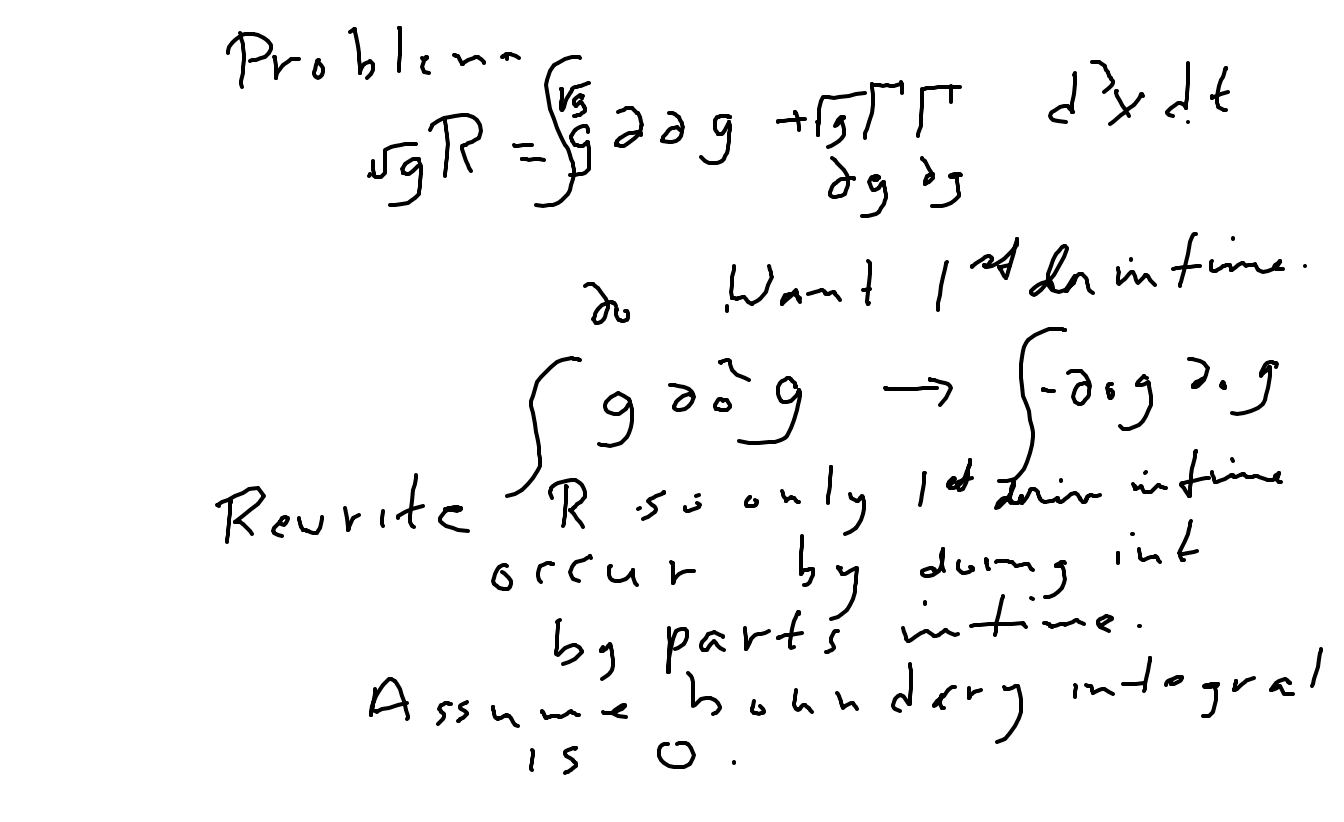 Problem
√g R = ∫ √g g ∂∂g + √g Γ Γ d³x dt
∂g ∂g
∂₀ Want 1st der in time.
∫ g ∂₀² g → ∫ -∂₀g ∂₀g
Rewrite R so only 1st deriv in time
occur by doing int
by parts in time.
Assume boundary integral
is 0.